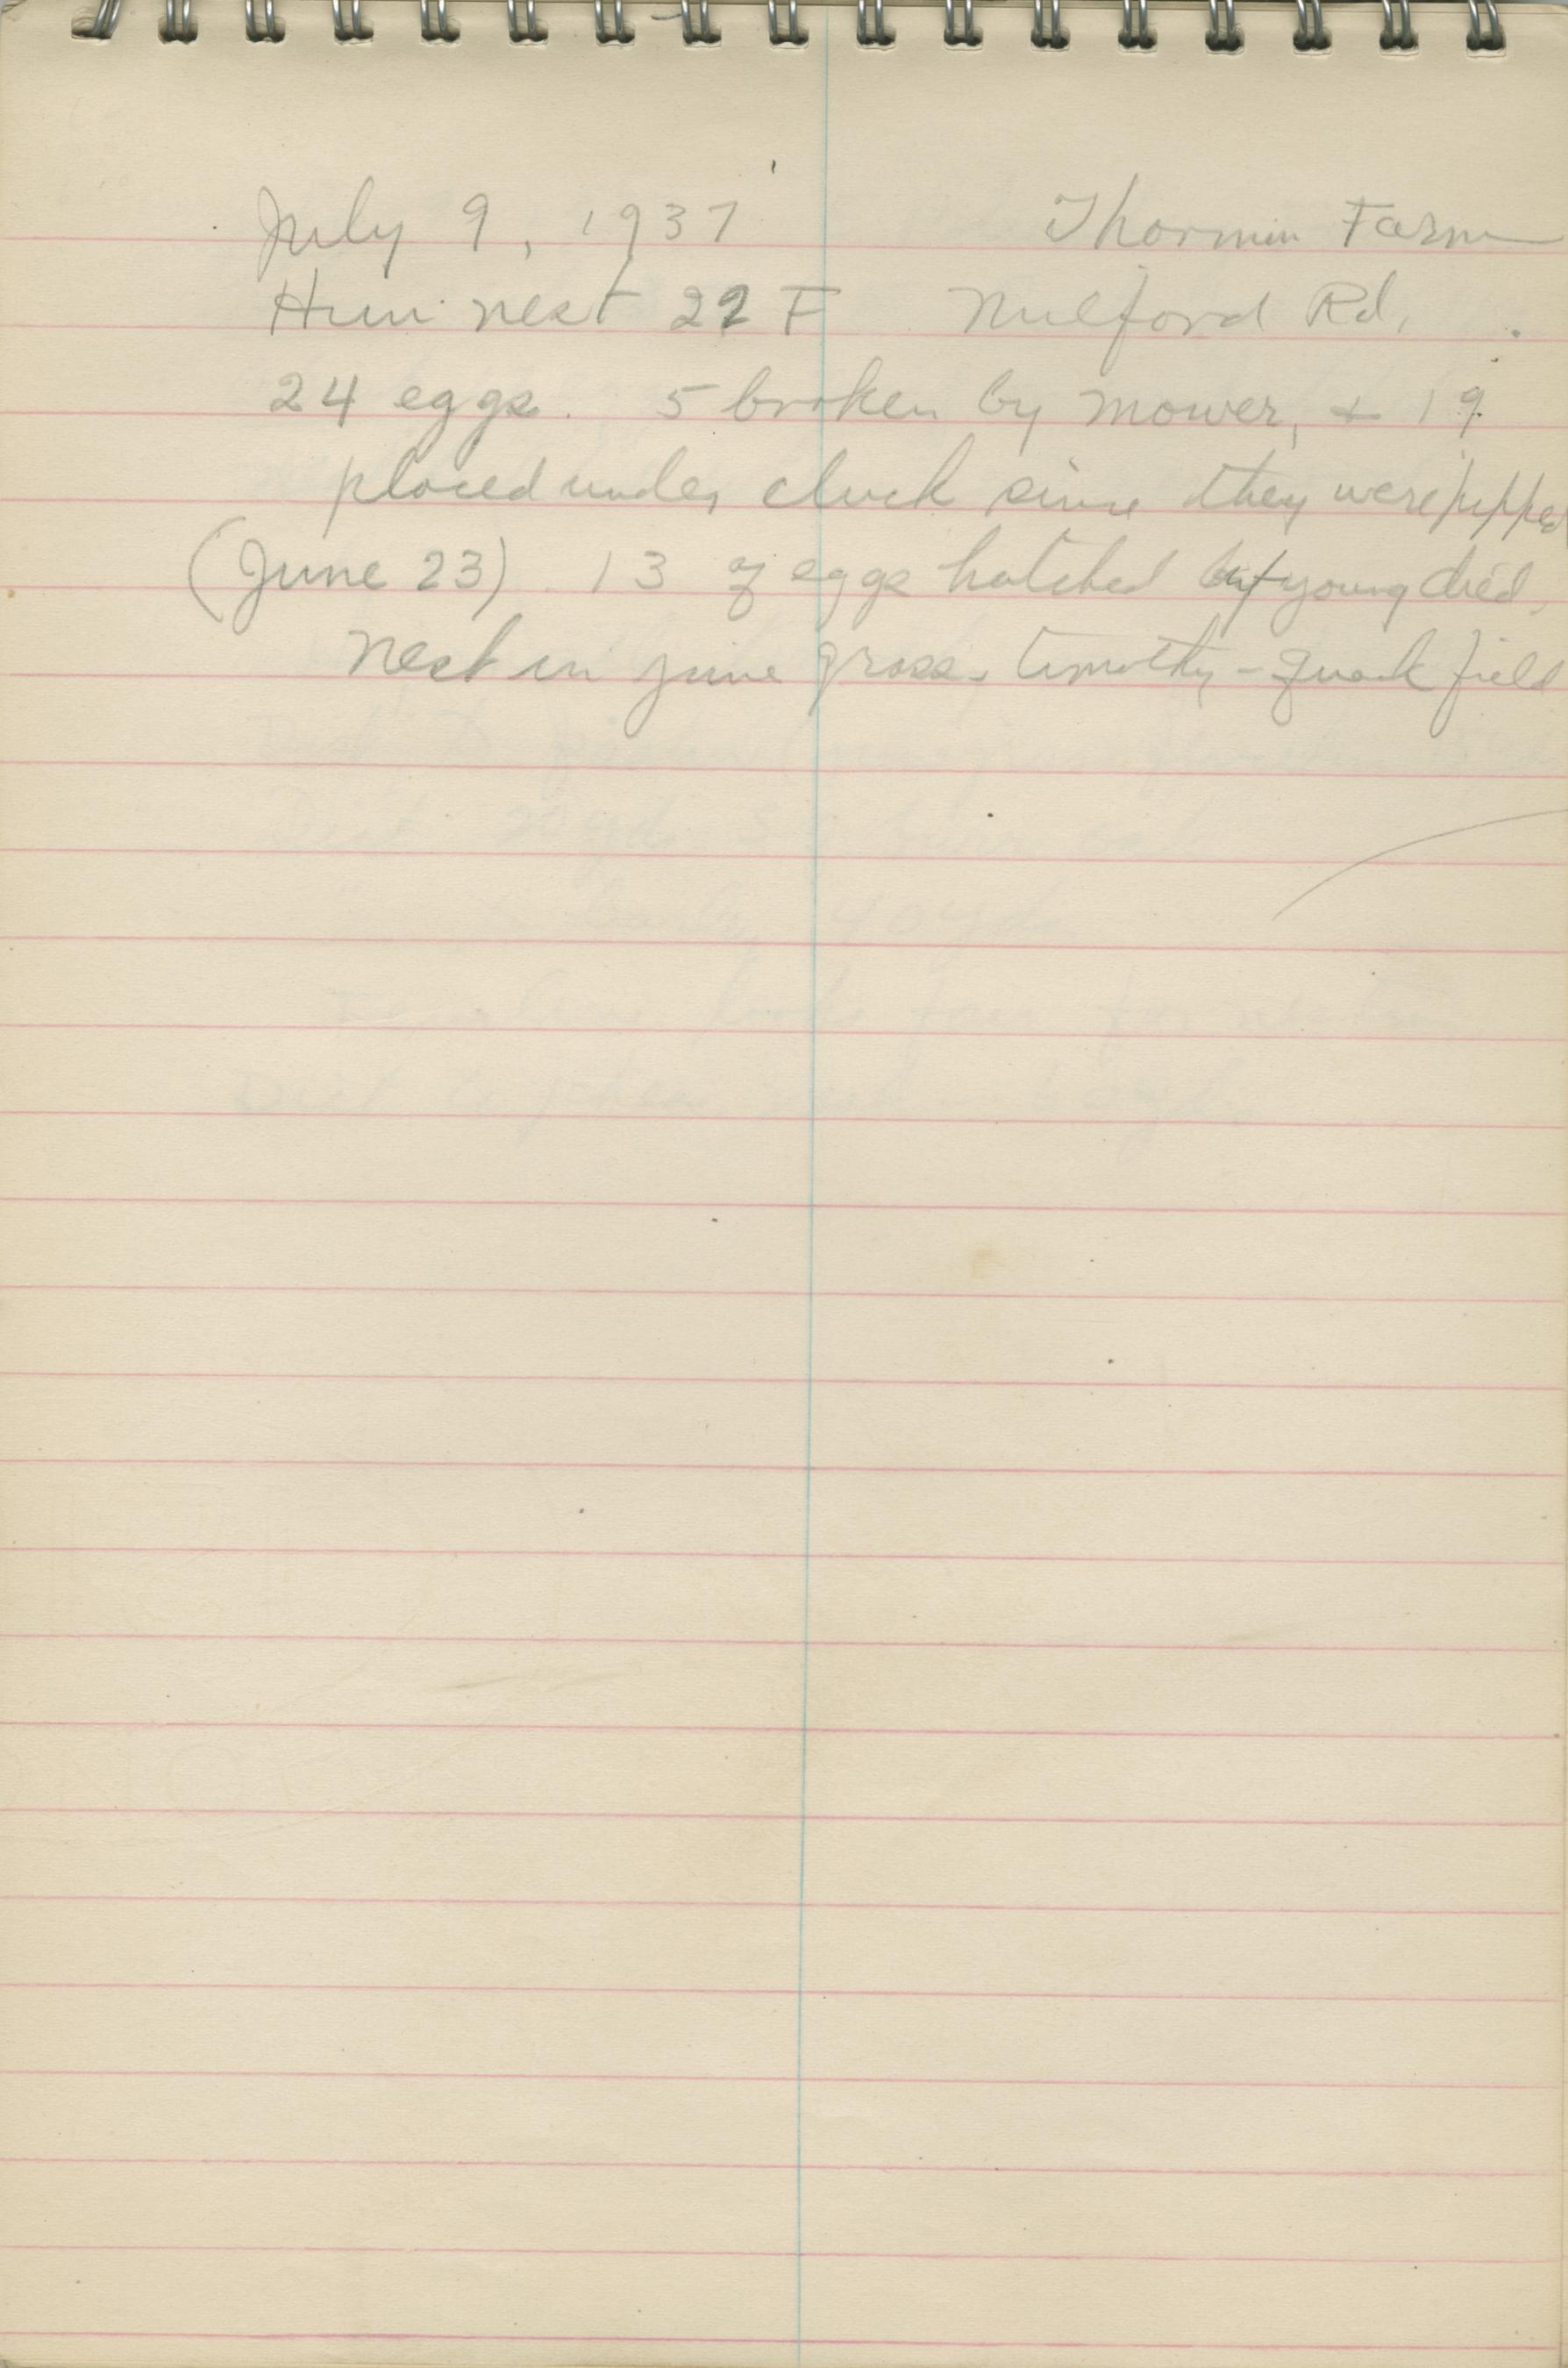 July 9, 1937 Thormin Farm
Hun nest 22 F Milford Rd.
24 eggs. 5 broken by mower, & 19
placed under cluck since they were pipped
(June 23) 13 of eggs hatched but young died.
Nest in june grass, timothy - quack field